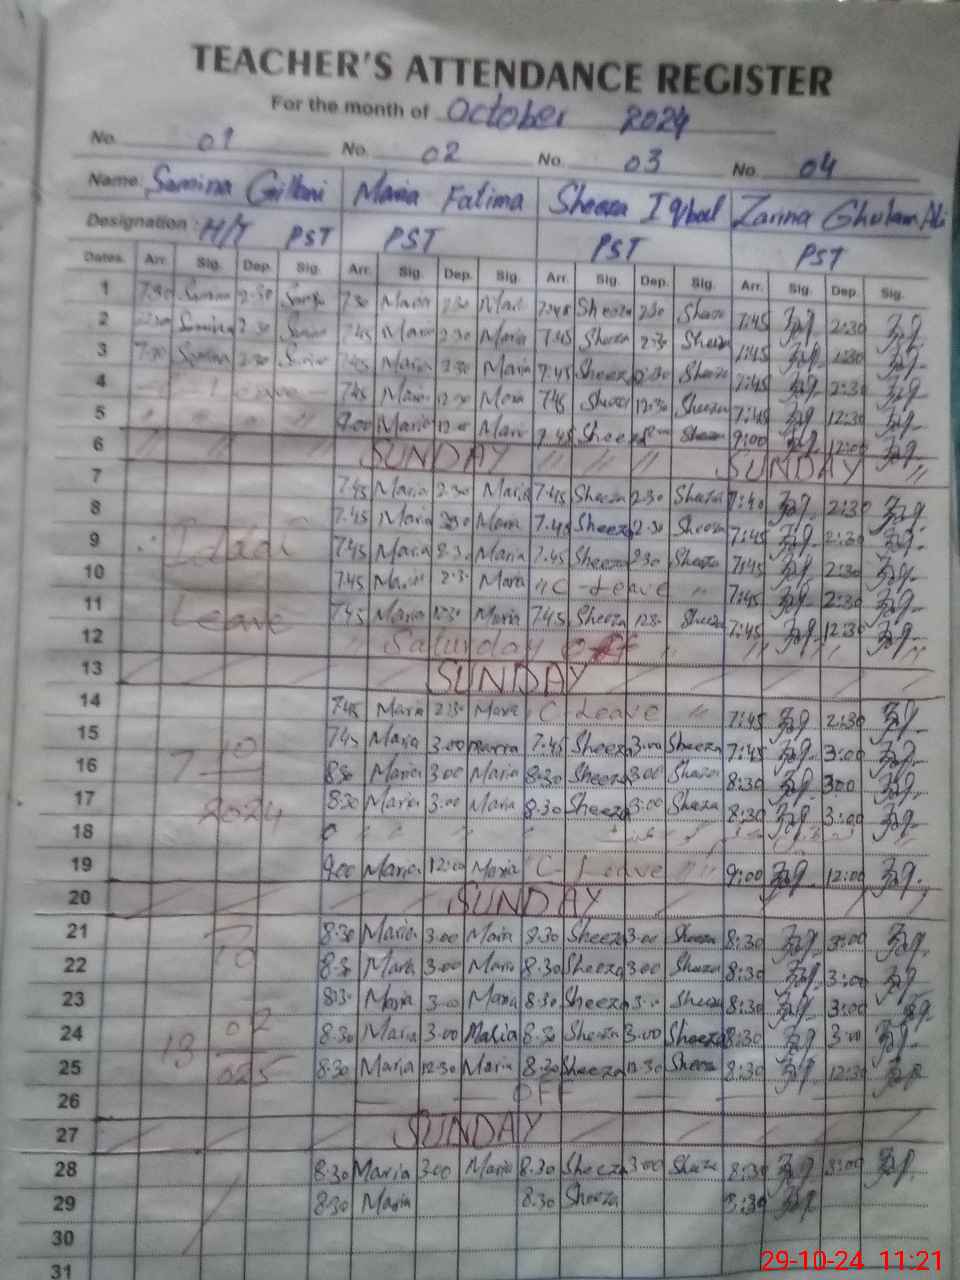 TEACHER'S ATTENDANCE REGISTER
For the month of October 2024
No. 01 No. 02 No. 03 No. 04
Name. Samina Gillani Maria Fatima Sheeza Iqbal Zarina Ghulam Ali
Designation : H/T PST PST PST PST
Dates. Arr. Sig. Dep. Sig. Arr. Sig. Dep. Sig. Arr. Sig. Dep. Sig. Arr. Sig. Dep. Sig.
1 7:30 Samina 2:30 7:30 Maria 2:30 7:45 Sheeza 2:30 Sheeza 7:45 2:30
2 Samina 2:30 7:45 Maria 2:30 Maria 7:45 Sheeza 2:30 Sheeza 7:45 2:30
3 7:30 Samina 2:30 7:45 Maria 2:30 Maria 7:45 Sheeza 2:30 Sheeza 7:45 2:30
4 C-Leave 7:45 Maria 12:30 Maria 7:45 Sheeza 12:30 Sheeza 7:45 12:30
5 9:00 Maria 12:00 Maria 7:45 Sheeza Sheeza 9:00 12:00
6 SUNDAY SUNDAY
7 7:45 Maria 2:30 Maria 7:45 Sheeza 2:30 Sheeza 7:40 2:30
8 7:45 Maria 2:30 Maria 7:45 Sheeza 2:30 Sheeza 7:45 2:30
9 7:45 Maria 2:30 Maria 7:45 Sheeza 2:30 Sheeza 7:45 2:30
10 7:45 Maria 2:30 Maria C-Leave 7:45 2:30
11 Leave 7:45 Maria 12:30 Maria 7:45 Sheeza 12:30 Sheeza 7:45 12:30
12 Saturday off
13 SUNDAY
14 7:45 Maria 2:30 Maria C-Leave 7:45 2:30
15 7:45 Maria 3:00 Maria 7:45 Sheeza 3:00 Sheeza 7:45 3:00
16 7 10 8:30 Maria 3:00 Maria 8:30 Sheeza 3:00 Sheeza 8:30 3:00
17 2024 8:30 Maria 3:00 Maria 8:30 Sheeza 3:00 Sheeza 8:30 3:00
18
19 9:00 Maria 12:00 Maria C-Leave 9:00 12:00
20 SUNDAY
21 8:30 Maria 3:00 Maria 8:30 Sheeza 3:00 Sheeza 8:30 3:00
22 10 8:30 Maria 3:00 Maria 8:30 Sheeza 3:00 Sheeza 8:30 3:00
23 8:30 Maria 3:00 Maria 8:30 Sheeza 3:00 Sheeza 8:30 3:00
24 13 02 8:30 Maria 3:00 Maria 8:30 Sheeza 3:00 Sheeza 8:30 3:00
25 025 8:30 Maria 12:30 Maria 8:30 Sheeza 12:30 Sheeza 8:30 12:30
26 OFF
27 SUNDAY
28 8:30 Maria 3:00 Maria 8:30 Sheeza 3:00 Sheeza 8:30 3:00
29 8:30 Maria 8:30 Sheeza 8:30
30
31
29-10-24 11:21